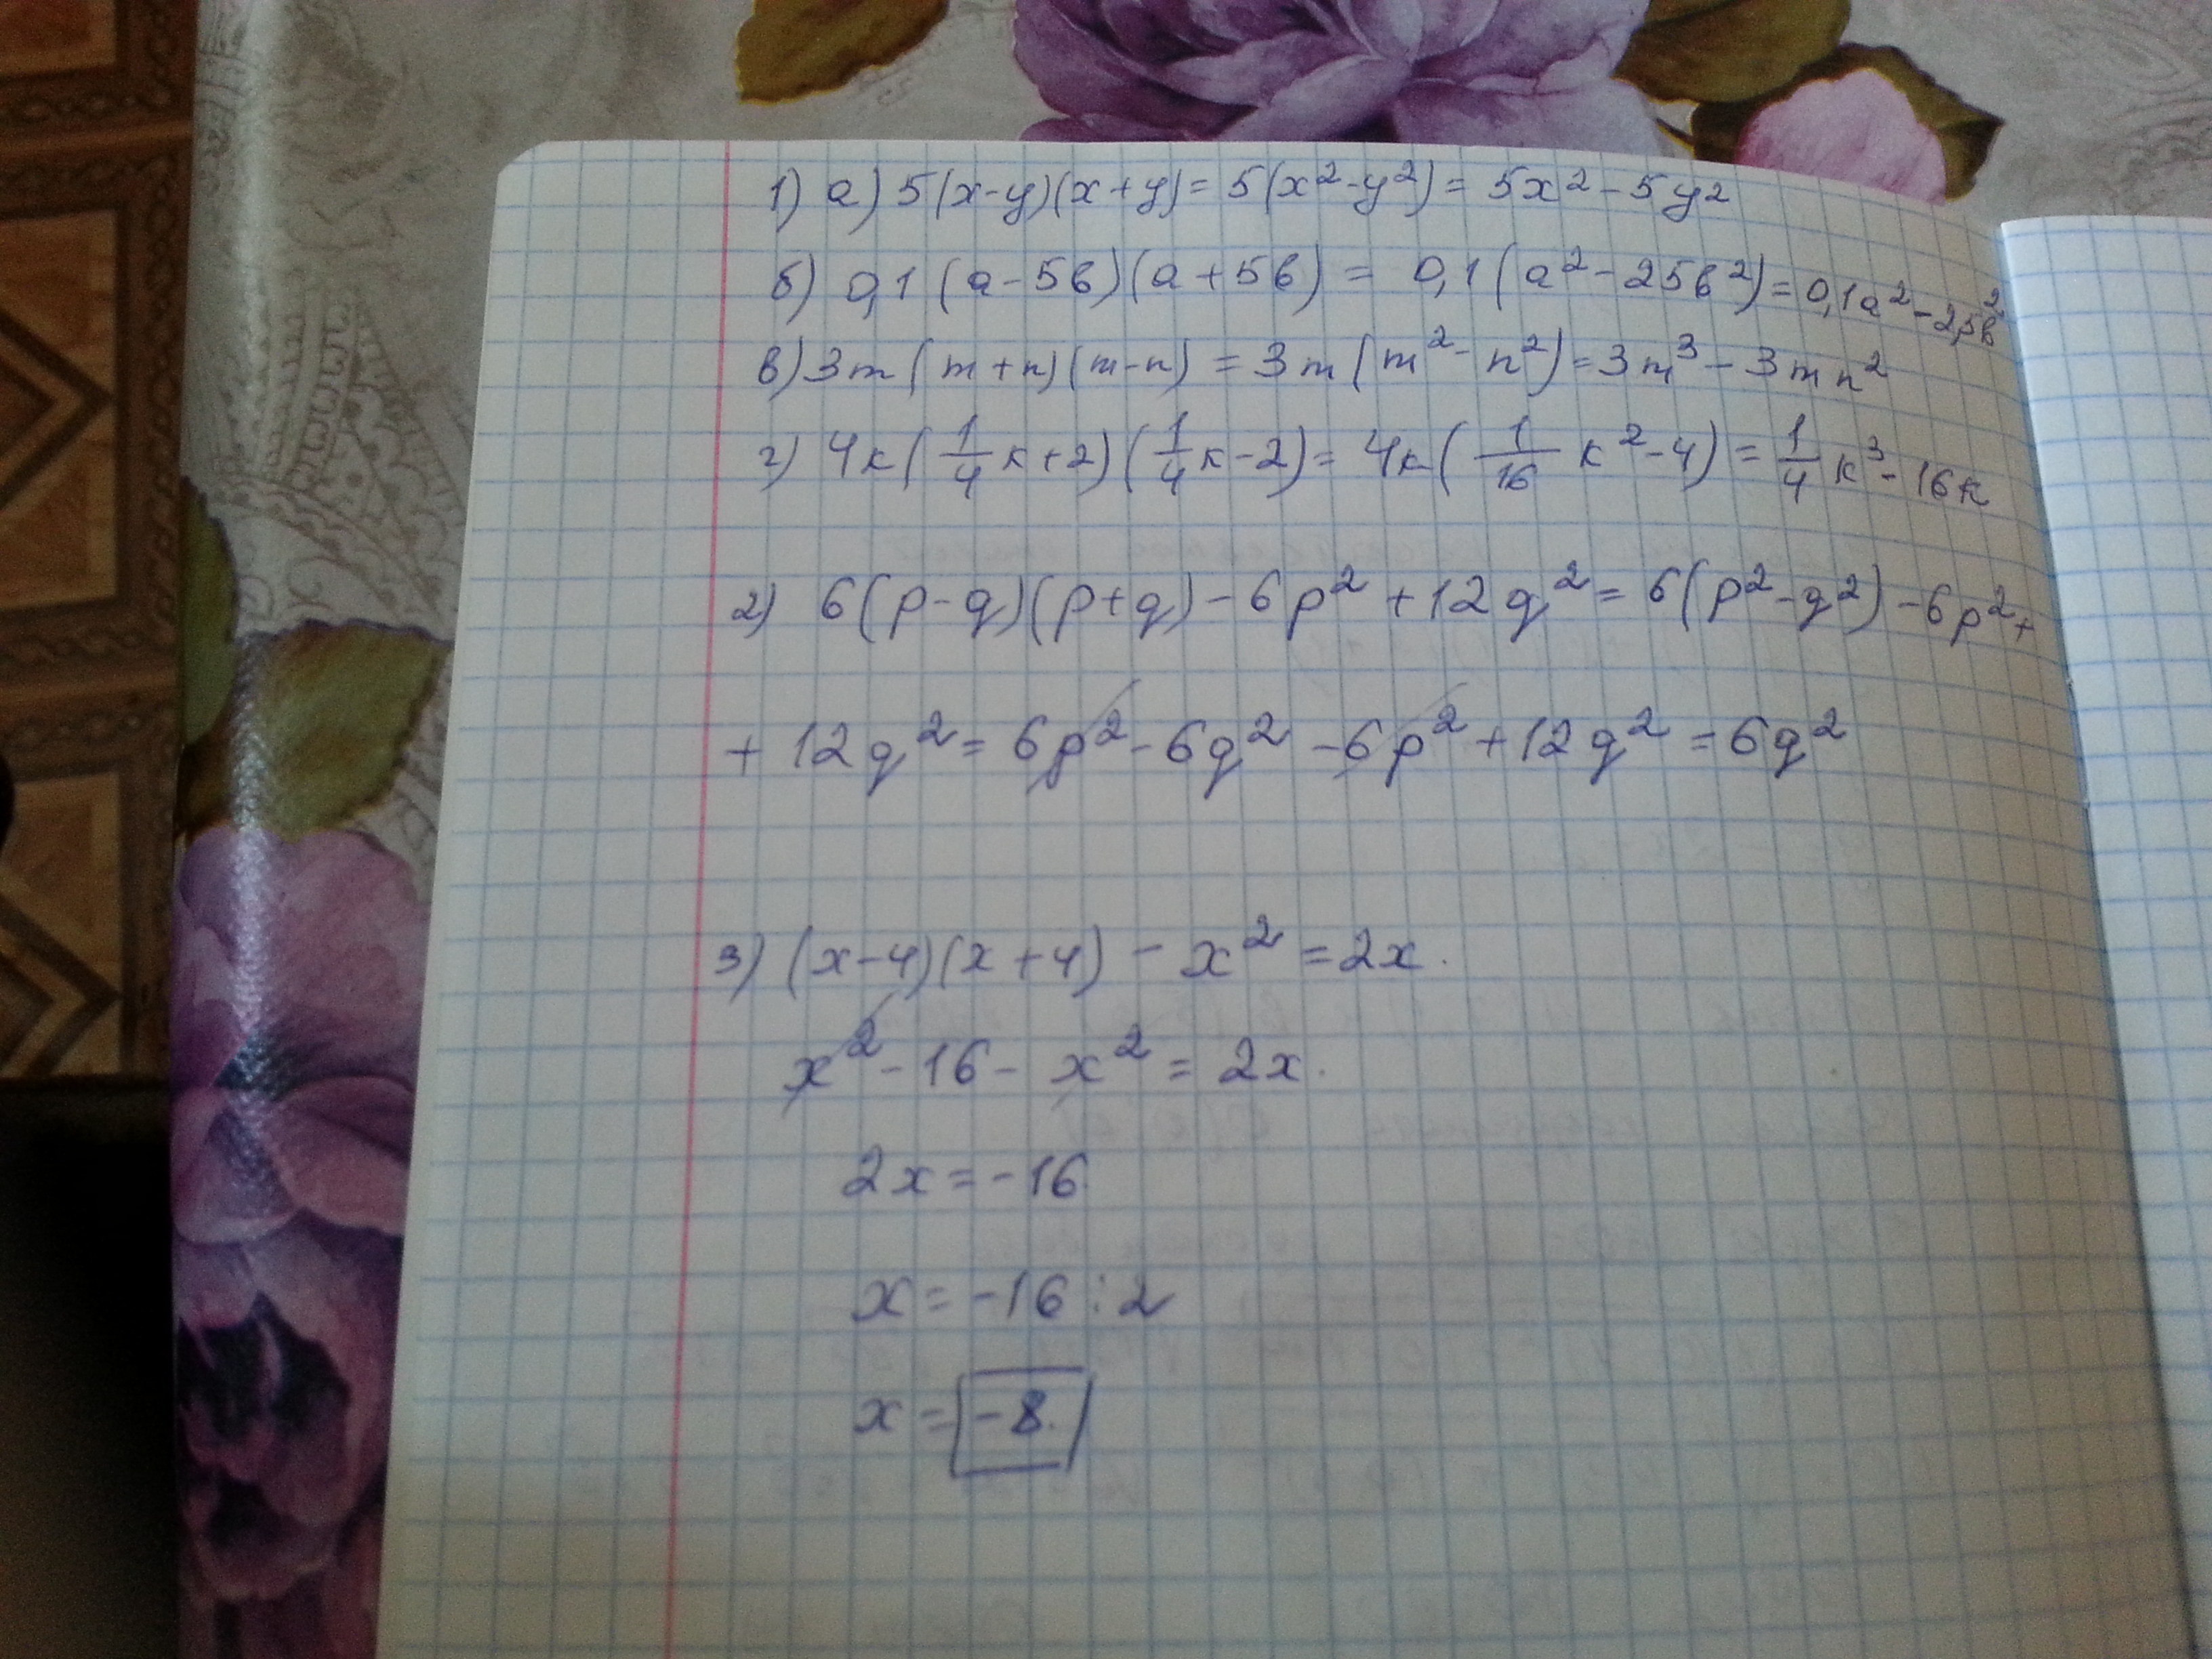 1) а) 5(x-y)(x+y) = 5(x²-y²) = 5x²-5y²
б) 0,1(a-5в)(a+5в) = 0,1(a²-25в²) = 0,1a²-2,5в²
в) 3m(m+n)(m-n) = 3m(m²-n²) = 3m³-3mn²
г) 4к(1/4к+2)(1/4к-2) = 4к(1/16к²-4) = 1/4к³-16к
2) 6(p-q)(p+q)-6p²+12q² = 6(p²-q²)-6p²+
+12q² = 6p²-6q²-6p²+12q² = 6q²
3) (x-4)(x+4)-x² = 2x.
x²-16-x² = 2x.
2x = -16
x = -16:2
x = -8.